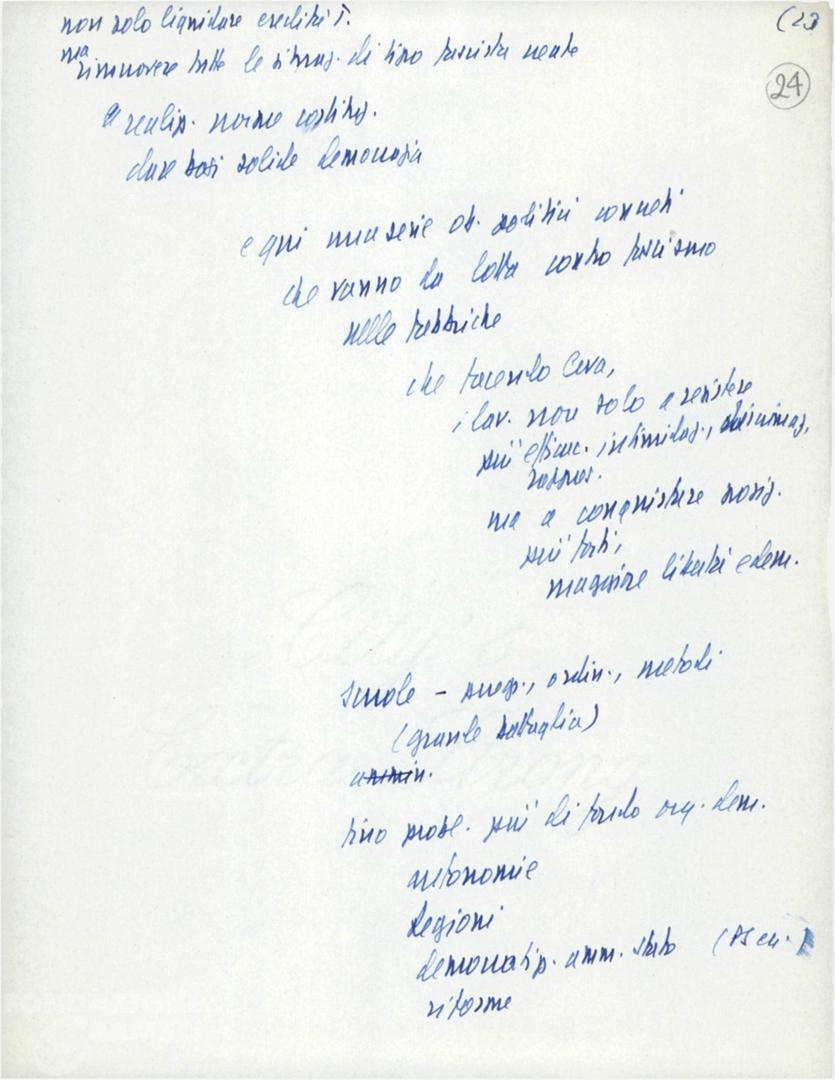 non solo liquidare eredità f.
(23
ma
rimuovere tutte le situaz. di tipo fascista
24
e realizz. norme costituz.
dare basi solide democrazia
e qui una serie ob. politici concreti
che vanno da lotta contro fascismo
nelle fabbriche
che facendo leva,
i lav. non solo a resistere
più efficac. intimidaz., discriminaz.,
ma a conquistare posiz.
più forti,
maggiore libertà e dem.
scuole - progr., ordin., metodi
(grande battaglia)
ammin.
fino probl. più di fondo org. dem.
autonomie
Regioni
democratizz. amm. stato
riforme